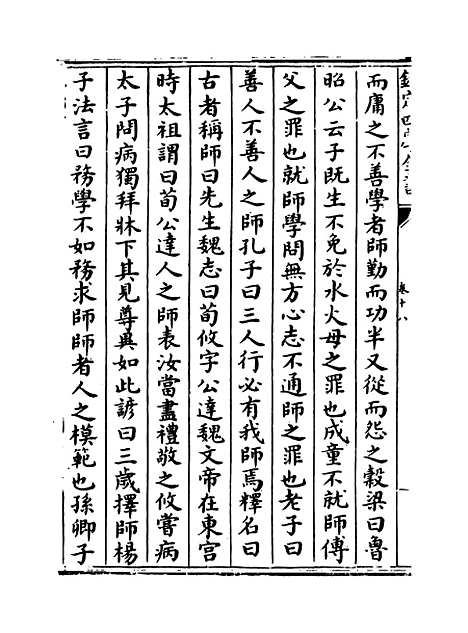 欽定四庫全書
卷十八
而庸之不善學者師勤而功半又從而怨之糓梁曰魯
昭公云子既生不免於水火母之罪也成童不就師傅
父之罪也就師學問無方心志不通師之罪也老子曰
善人不善人之師孔子曰三人行必有我師焉釋名曰
古者稱師曰先生魏志曰荀攸字公達魏文帝在東宫
時太祖謂曰荀公達人之師表汝當盡禮敬之攸嘗病
太子問病獨拜牀下其見尊異如此諺曰三歲擇師楊
子法言曰務學不如務求師師者人之模範也孫卿子